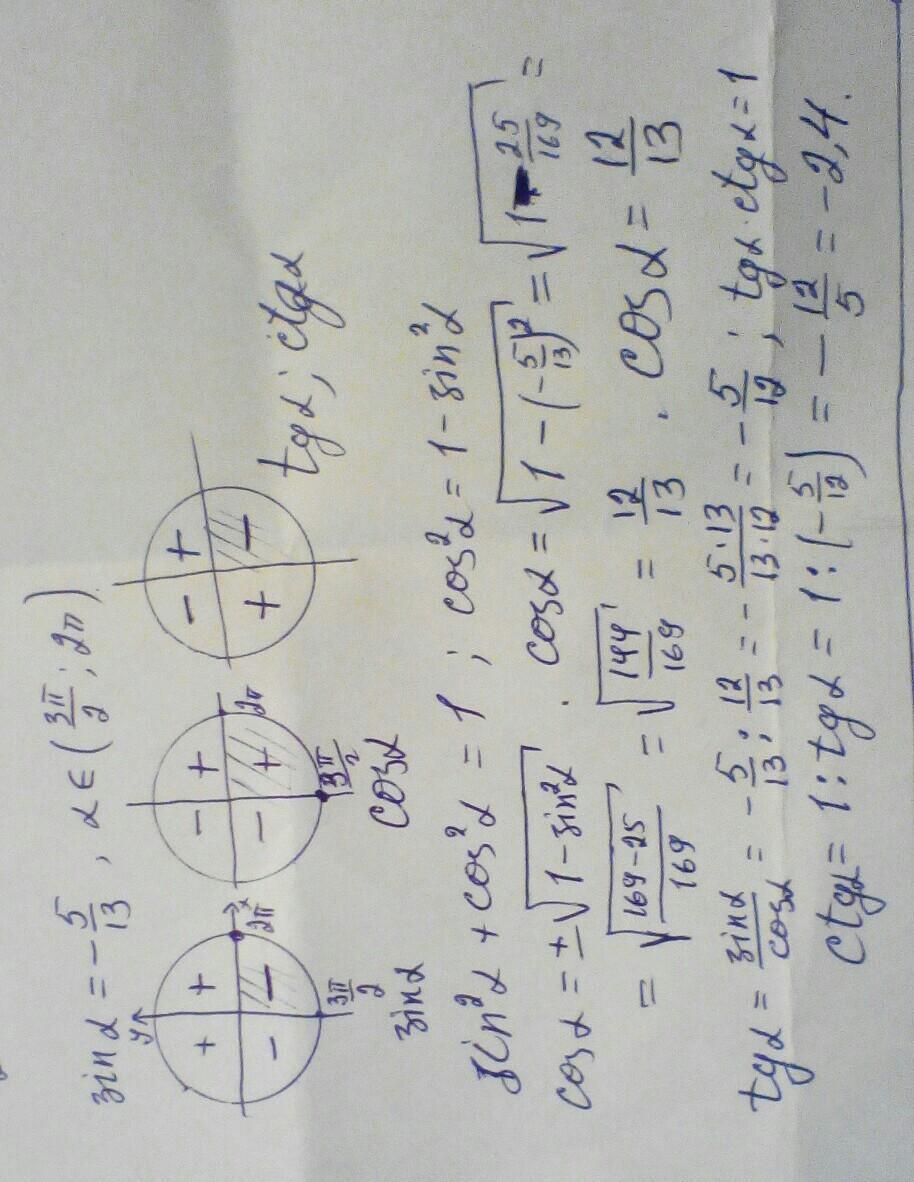 sinα = -5/13, α∈(3π/2; 2π)
y x
+ + - - 2π 3π/2
- + - + 2π 3π/2
- + + -
sinα cosα tgα; ctgα
sin²α + cos²α = 1; cos²α = 1 - sin²α
cosα = ±√(1-sin²α). cosα = √(1-(-5/13)²) = √(1-25/169) =
= √((169-25)/169) = √(144/169) = 12/13. cosα = 12/13
tgα = sinα/cosα = -5/13 : 12/13 = -(5·13)/(13·12) = -5/12; tgα·ctgα=1
ctgα = 1:tgα = 1:(-5/12) = -12/5 = -2,4.